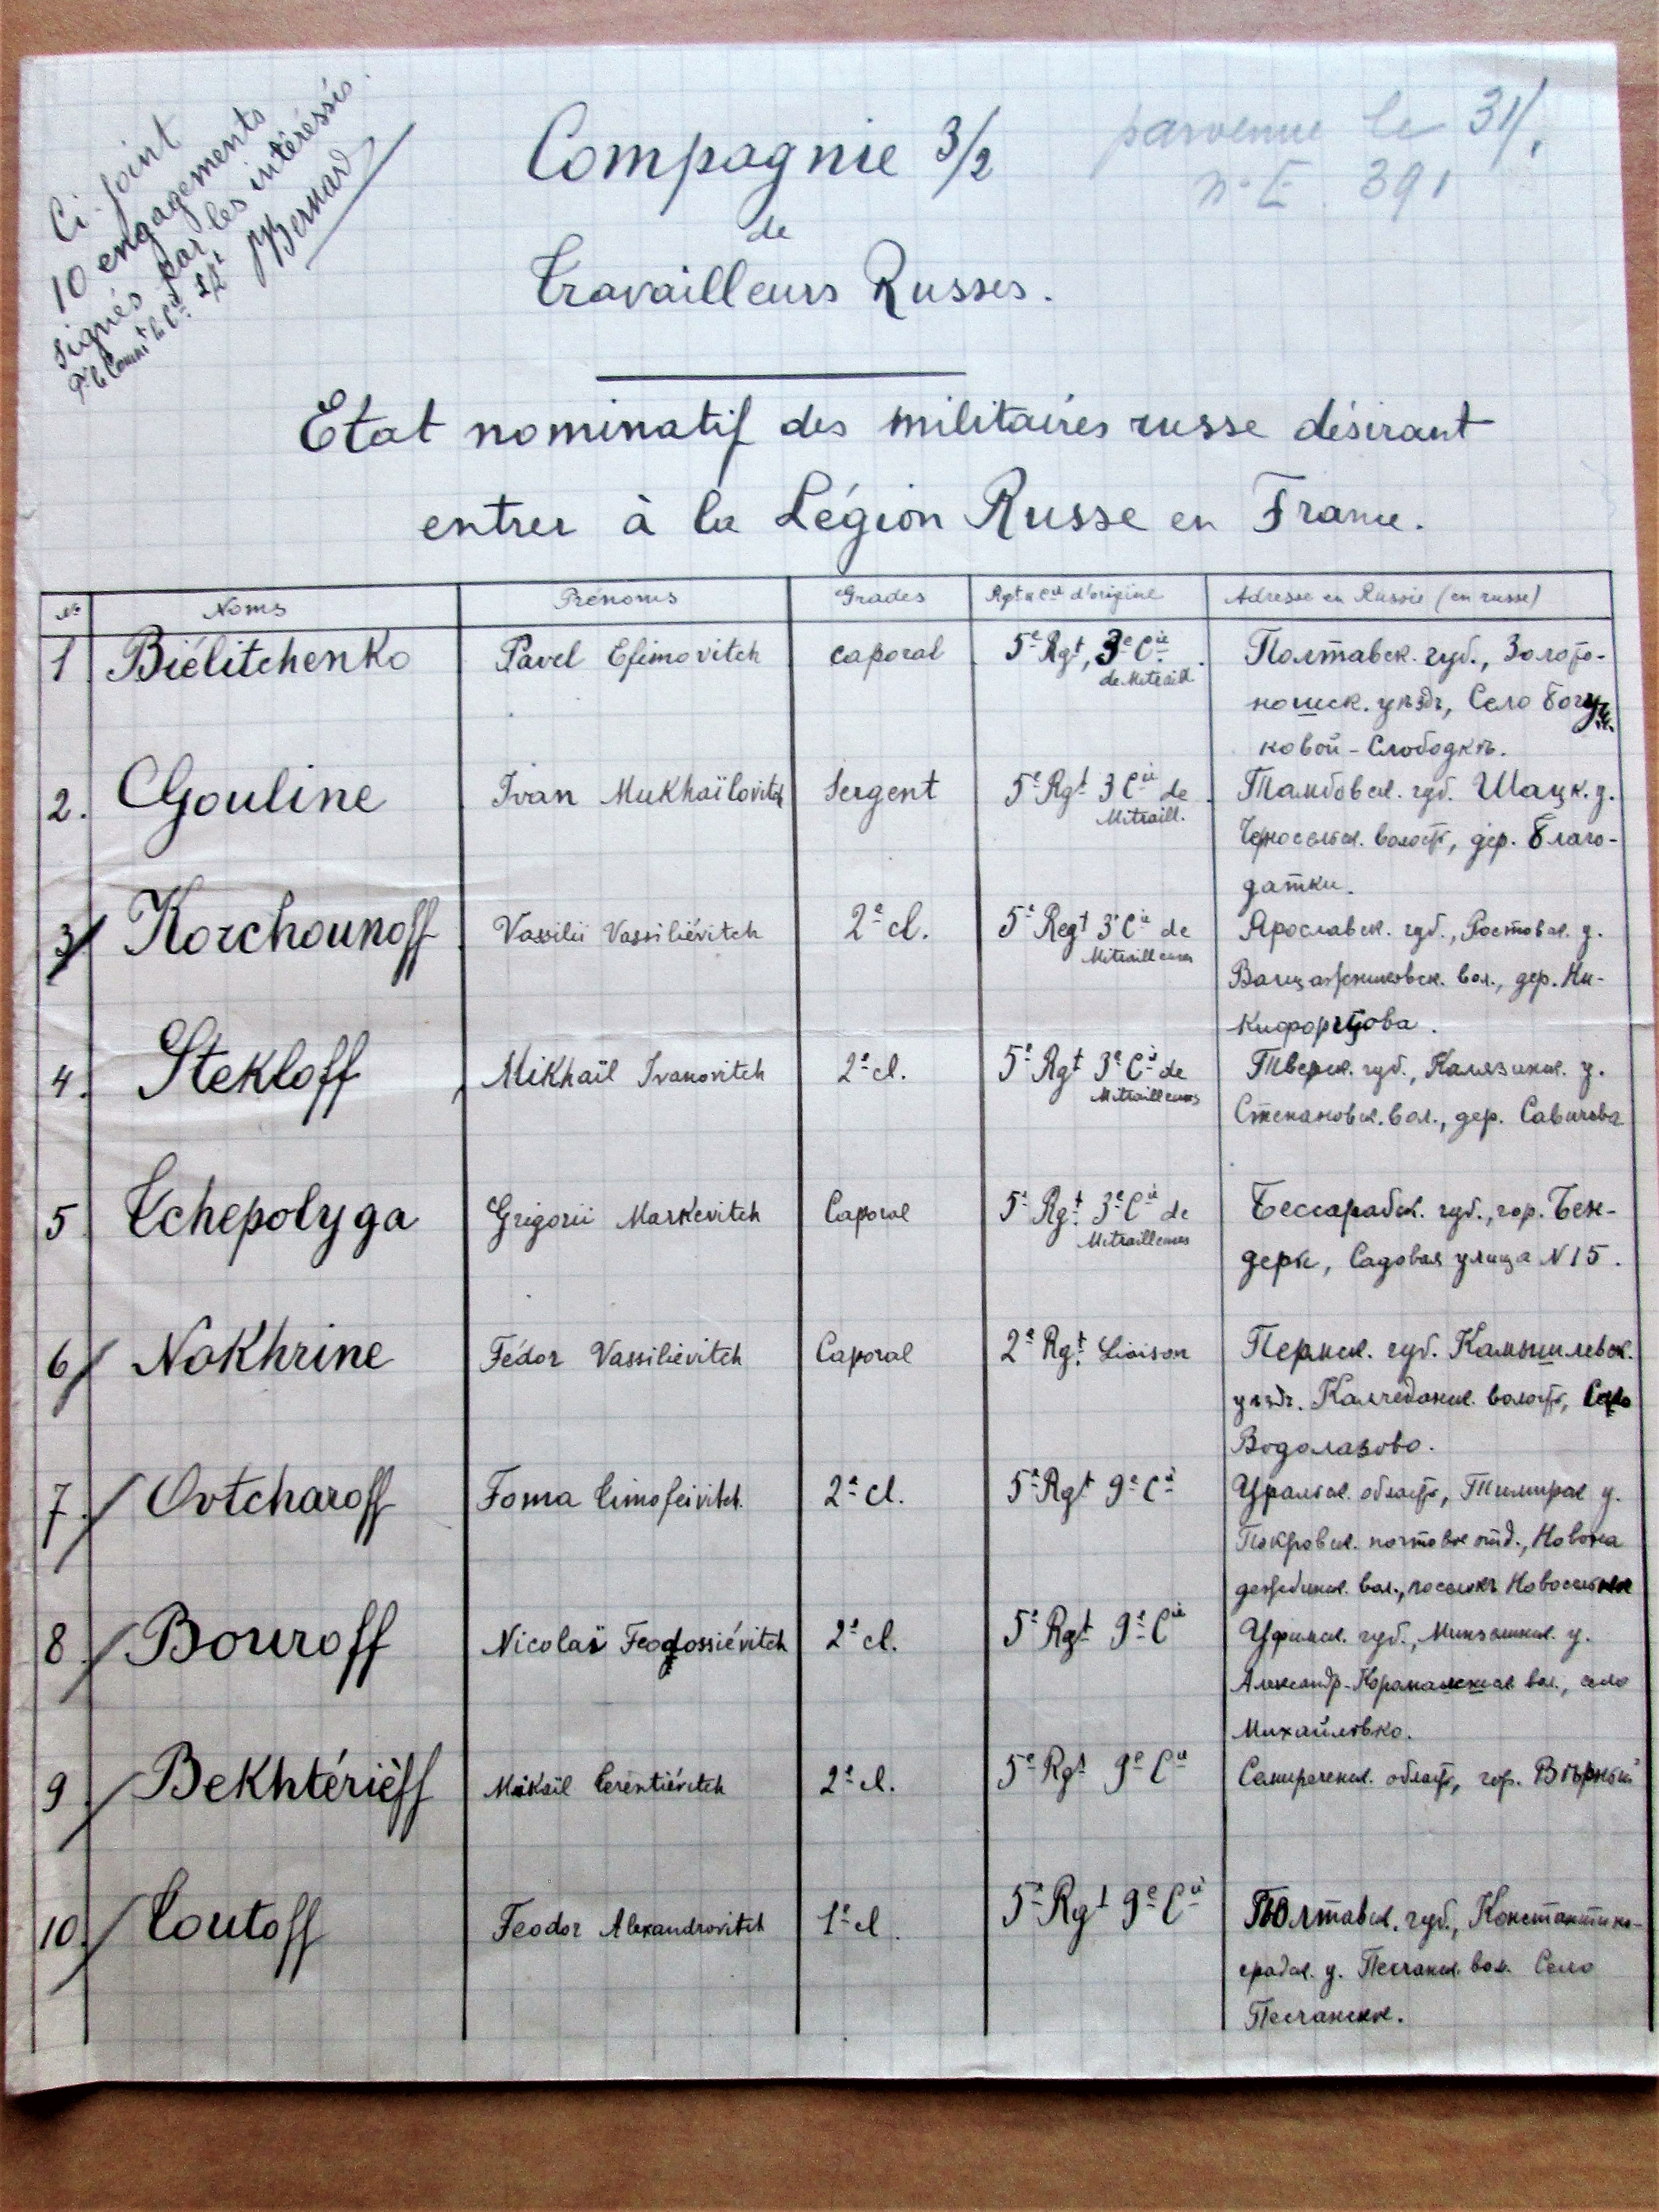 Ci-joint
10 engagements
signés par les intéréssés.
Pr le Comm't la Cie Lt
Bernard
parvenue le 31/.
n° E. 391
Compagnie 3/2
de
Travailleurs Russes.
Etat nominatif des militaires russe désirant
entrer à la Légion Russe en France.
No Noms Prénoms Grades Rgt et Cie d'origine Adresse en Russie (en russe)
1 Biélitchenko Pavel Efimovitch caporal 5e Rgt, 3e Cie de Mitraill. Полтавск. губ., Золото-
ношск. уѣздъ, Село Богуш-
ковой-Слободкѣ.
2. Gouline Ivan Mukhaïlovitch Sergent 5e Rgt 3 Cie de Mitraill. Тамбовск. губ. Шацк. у.
волость, дер. Благо-
датки.
3 Korchounoff Vassilii Vassiliévitch 2e cl. 5e Regt 3e Cie de Mitrailleurs Ярославск. губ., Ростовск. у.
вол., дер. Ни-
кифорцова.
4. Stekloff Mikhaïl Ivanovitch 2e cl. 5e Rgt 3e Cie de Mitrailleurs Тверск. губ., Калязинск. у.
Степановск. вол., дер. Савичева
5 Tchepolyga Grigorii Markevitch Caporal 5e Rgt. 3e Cie de Mitrailleurs Бессарабск. губ., гор. Бен-
деры, Садовая улица N 15.
6 Nokhrine Fédor Vassiliévitch Caporal 2e Rgt. Liaison Пермск. губ. Камышлевск.
уѣздъ. Колчеданск. волость, Село
Водолазово.
7. Ovtcharoff Foma Timofeivitch. 2e cl. 5e Rgt 9e Cie Уральск. область, Темирск у.
Покровск. почтовое отд., Новона
дежденск. вол., поселокъ
8 Bouroff Nicolaï Feodossiévitch 2e cl. 5e Rgt 9e Cie Уфимск. губ., Мензелинск. у.
Александр-Карамалинск вол., село
Михайловка.
9 Bekhtérièff Mikaïl Terentiévitch 2e cl. 5e Rgt 9e Cie Семиреченск. область, гор. Вѣрный
10. Toutoff Feodor Alexandrovitch 1e cl. 5e Rgt 9e Cie Полтавск. губ., Константино-
градск. у. Песчанск. вол. Село
Песчанское.